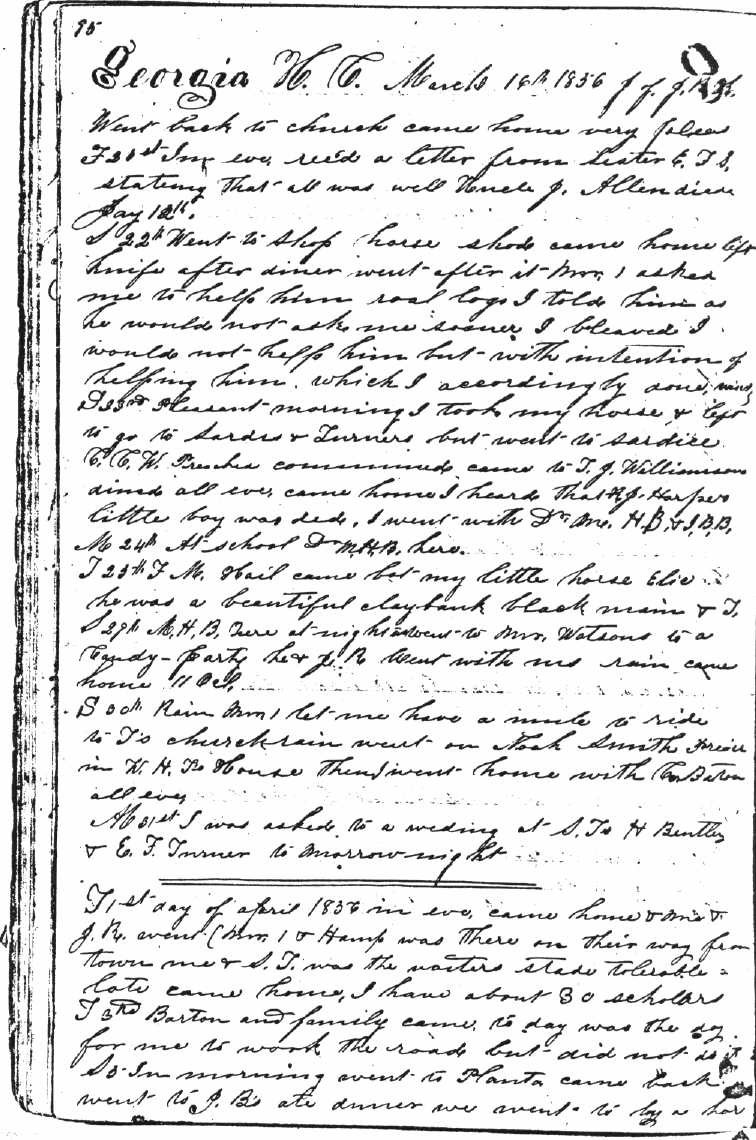 95
Georgia H. C. March 16th 1856 J. J. J. R.
Went back to church came home very
F 21st In eve, rec'd a letter from Sister E. T. S.
stating that all was well Uncle J. Allen died
Jay 12th.
S 22th Went to Shop horse shod came home left
knife after diner went after it Mrr, 1 asked
me to help him roal logs I told him as
he would not ask me sooner I bleaved I
would not help him but with intention of
helping him which I accordingly done,
S 23rd Pleasant morning I took my horse & left
to go to Sardis & Turners but went to Sardice
C. C. W. Preacher communed came to T. J. Williamsons
dined all eve, came home I heard that R. J. Harpers
little boy was dede, I went with Dr. Mc. H. B. & J. B. B.
M 24th At school Dr M. H. B. here.
T 25th F. M. Hail came bot my little horse Elic
he was a beautiful claybank black main & T.
S 29th M. H. B. here at night went to Mrr, Watsons to a
Candy-Party he & J. R. went with me rain came
home 11 OCl,
S 30th Rain Mrr, 1 let me have a mule to ride
to T's church rain went on Noah Smith
in W. H. Ps House then I went home with
all eve,
M 31st I was asked to a weding at S. Ts H Bentley
& E. F. Turner to Morrow night
T 1st day of april 1856 in eve, came home & Me &
J. R. went (Mrr, 1 & Hamp was there on their way from
town me & S. T. was the waiters stade tolerable =
late came home, I have about 30 scholers
T 3rd Barton and family came, to day was the day
for me to work the road but did not do it
S 5 In morning went to Planta came back
went to J. Bs ate dinner we went to by a hor